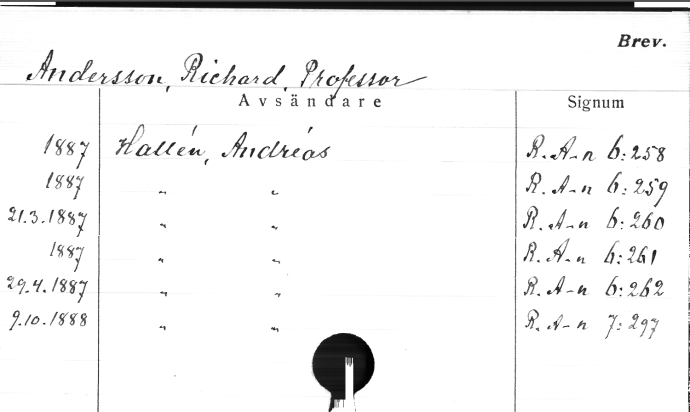 Brev.
Andersson, Richard, Professor
Avsändare Signum
1887 Hallén, Andréas R. A-n 6:258
1887 „ „ R. A-n 6:259
21.3.1887 „ „ R. A-n 6:260
1887 „ „ R. A-n 6:261
29.4.1887 „ „ R. A-n 6:262
9.10.1888 „ „ R. A-n 7:297